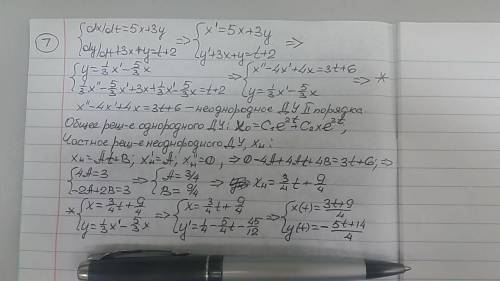 7 {dx/dt=5x+3y {dy/dt+3x+y=t+2 => {x'=5x+3y {y'+3x+y=t+2 =>
{y=1/3x'-5/3x {1/3x''-5/3x'+3x+1/3x'-5/3x=t+2 => {x''-4x'+4x=3t+6 {y=1/3x'-5/3x => *
x''-4x'+4x=3t+6 - неоднородное ДУ II порядка.
Общее реш-е однородного ДУ: x₀=C₁e^2t+C₂xe^2t,
Частное реш-е неоднородного ДУ, xн:
xн=At+B; x'н=A; x''н=0, => 0-4A+4At+4B=3t+6; =>
{4A=3 {-2A+2B=3 => {A=3/4 {B=9/4 => xн=3/4t+9/4
* {x=3/4t+9/4 {y=1/3x'-5/3x => {x=3/4t+9/4 {y=1/4-5/4t-45/12 => {x(t)=3t+9/4 {y(t)=-5t+14/4